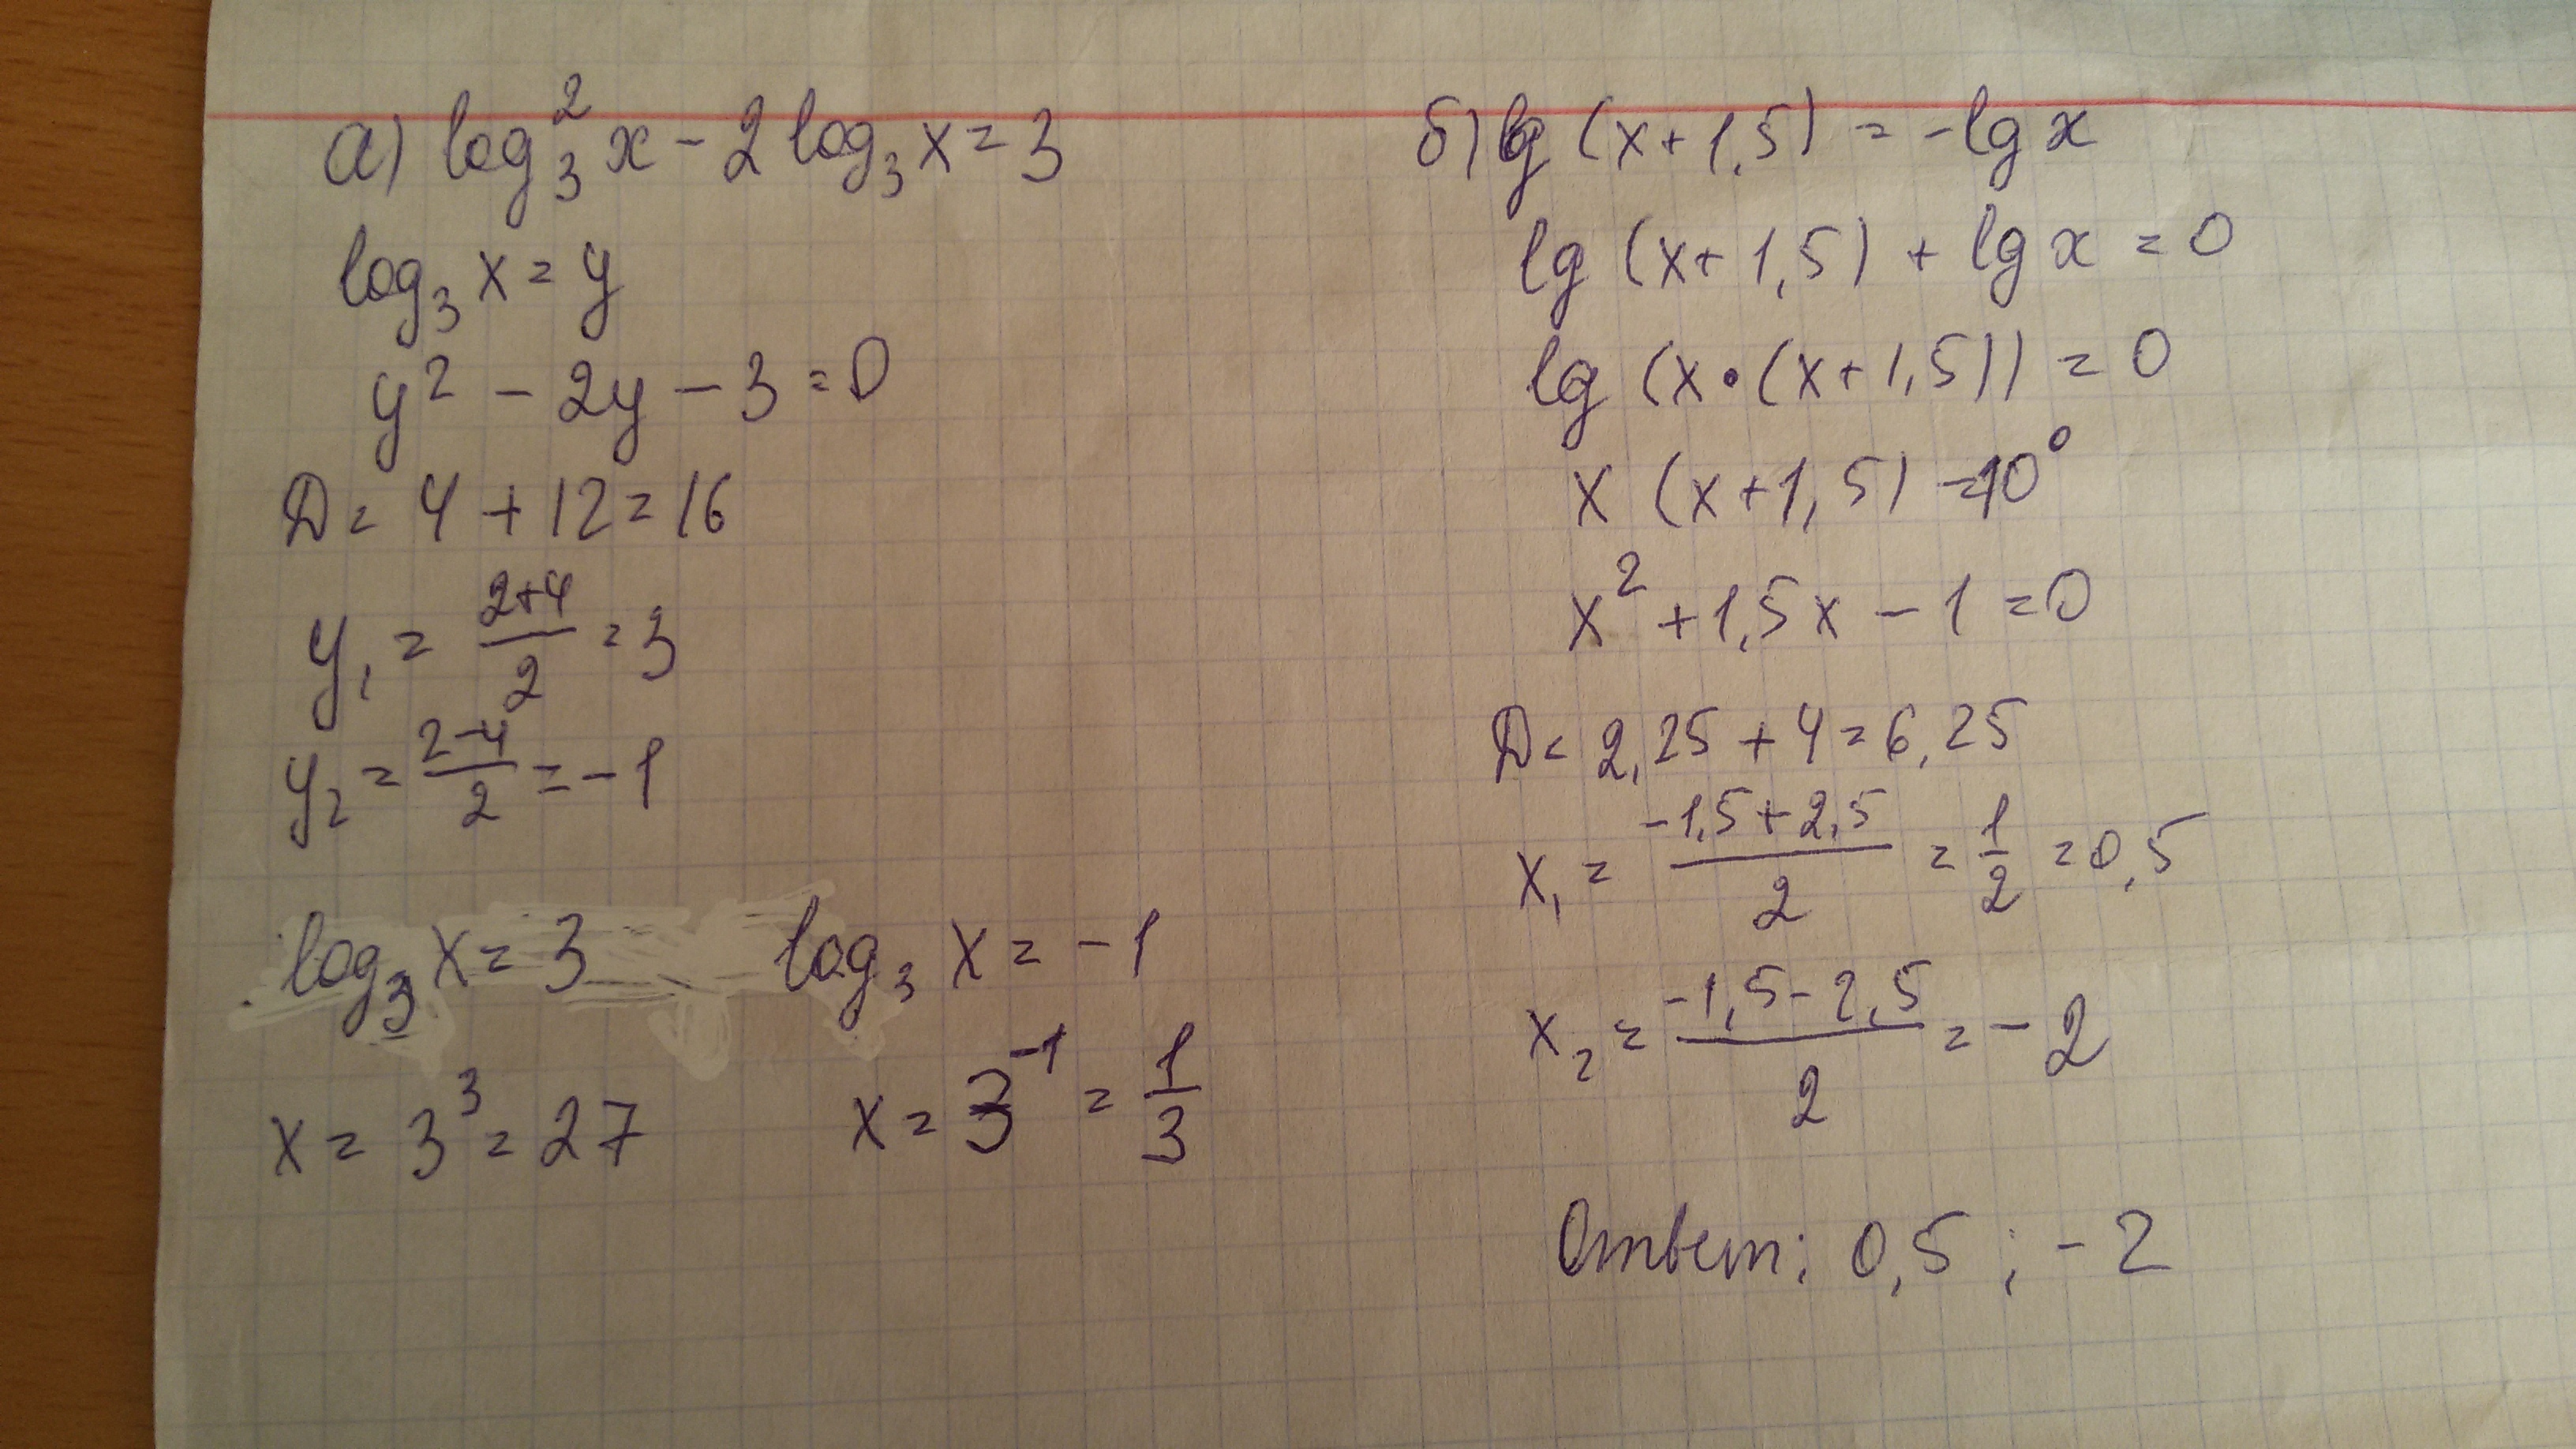 а) log₃²x - 2log₃x = 3
log₃x = y
y² - 2y - 3 = 0
D = 4 + 12 = 16
y₁ = (2+4)/2 = 3
y₂ = (2-4)/2 = -1
log₃x = 3 log₃x = -1
x = 3³ = 27 x = 3⁻¹ = 1/3
б) lg (x+1,5) = -lg x
lg (x+1,5) + lg x = 0
lg (x•(x+1,5)) = 0
x (x+1,5) = 10⁰
x² + 1,5x - 1 = 0
D = 2,25 + 4 = 6,25
x₁ = (-1,5+2,5)/2 = 1/2 = 0,5
x₂ = (-1,5-2,5)/2 = -2
Ответ: 0,5 ; -2